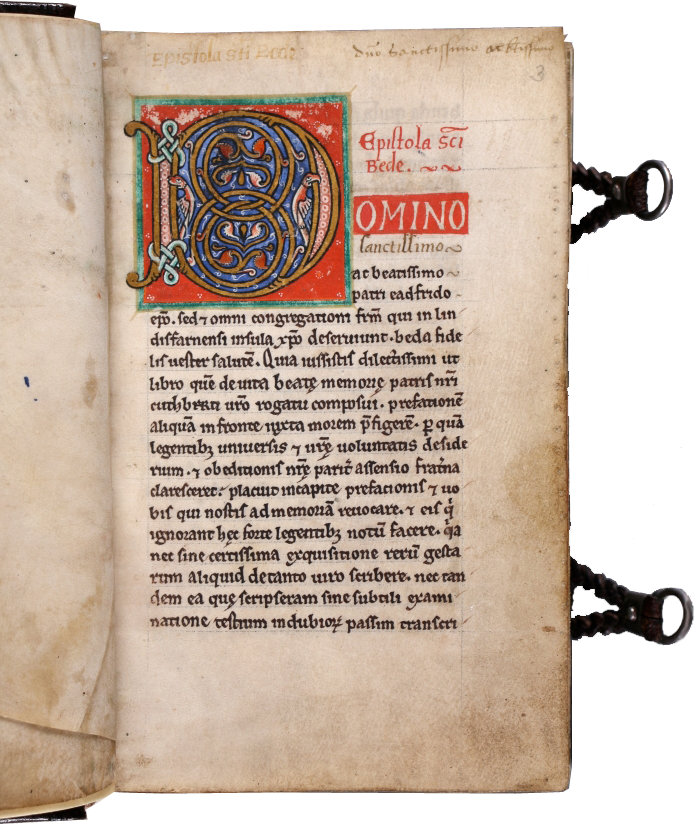 Epistola sti Bede
dño Sanctissimo ac btissimo
3
Epistola Sc̄i
Bede.
DOMINO
sanctissimo
ac beatissimo
patri eadfrido
ep̄o. sed ⁊ omni congregationi fr̄m qui in lin
disfarnensi insula xp̄o deseruiunt. beda fide
lis uester salutē. Quia iussistis dilectissimi ut
libro quē de uita beatę memorię patris nr̄i
cuthberti ur̄o rogatu composui. prefationē
aliquā in fronte iuxta morem p̄figerē. ꝑ quā
legentibꝫ uniuersis ⁊ ur̄ę uoluntatis deside
rium. ⁊ obeditionis nr̄ę parit̄ assensio frat̄na
claresceret. placuit in capite prefacionis ⁊ uo
bis qui nostis ad memoriā reuocare. ⁊ eis q̇
ignorant hęc forte legentibꝫ notū facere. q̇a
nec sine certissima exquisitione rerū gesta
rum aliquid de tanto uiro scribere. nec tan
dem ea quę scripseram sine subtili exami
natione testium indubioꝝ passim transcri